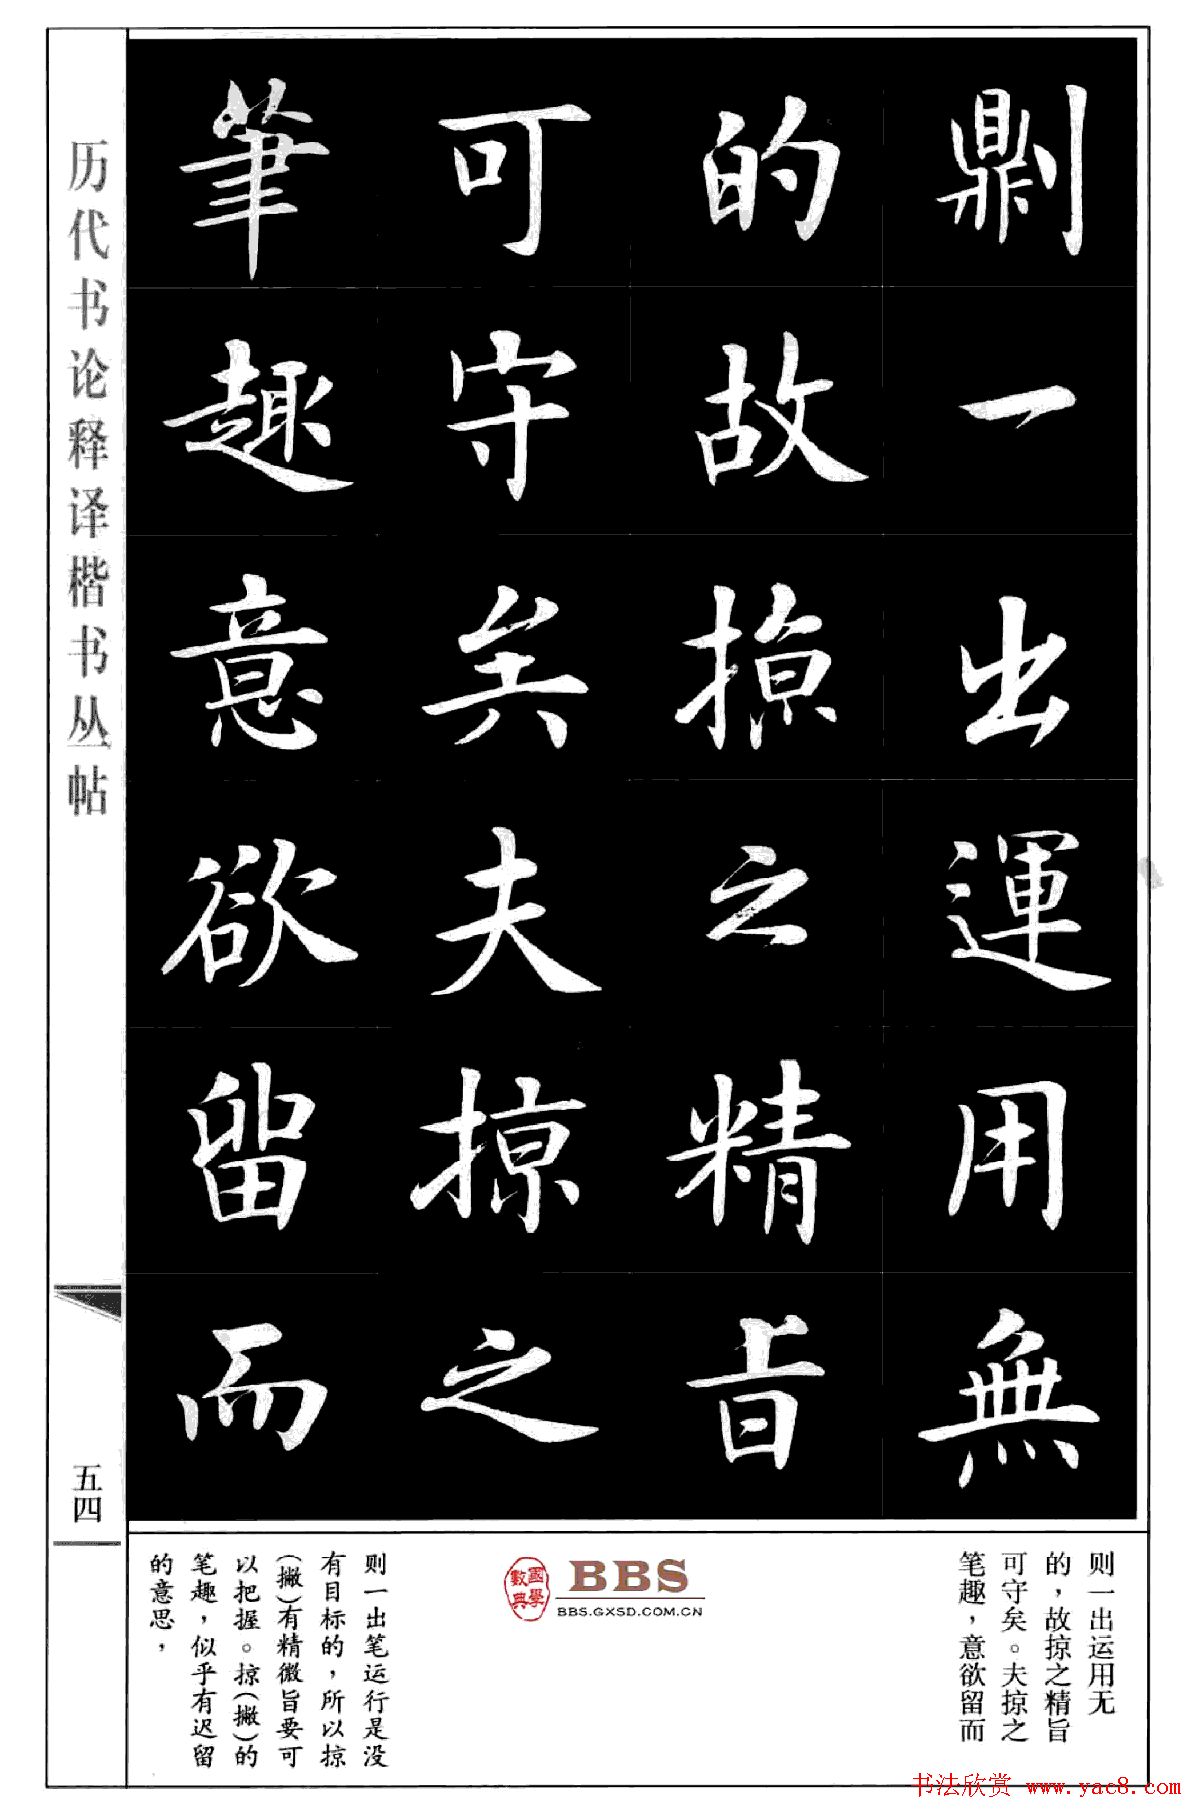 劓一出運用無
的故掠之精旨
可守矣夫掠之
筆趣意欲留而
历代书论释译楷书丛帖
五四
则一出运用无
的，故掠之精旨
可守矣。夫掠之
笔趣，意欲留而
國學
數典
BBS
BBS.GXSD.COM.CN
则一出笔运行是没
有目标的，所以掠
(撇)有精微旨要可
以把握。掠(撇)的
笔趣，似乎有迟留
的意思，
书法欣赏 www.yac8.com